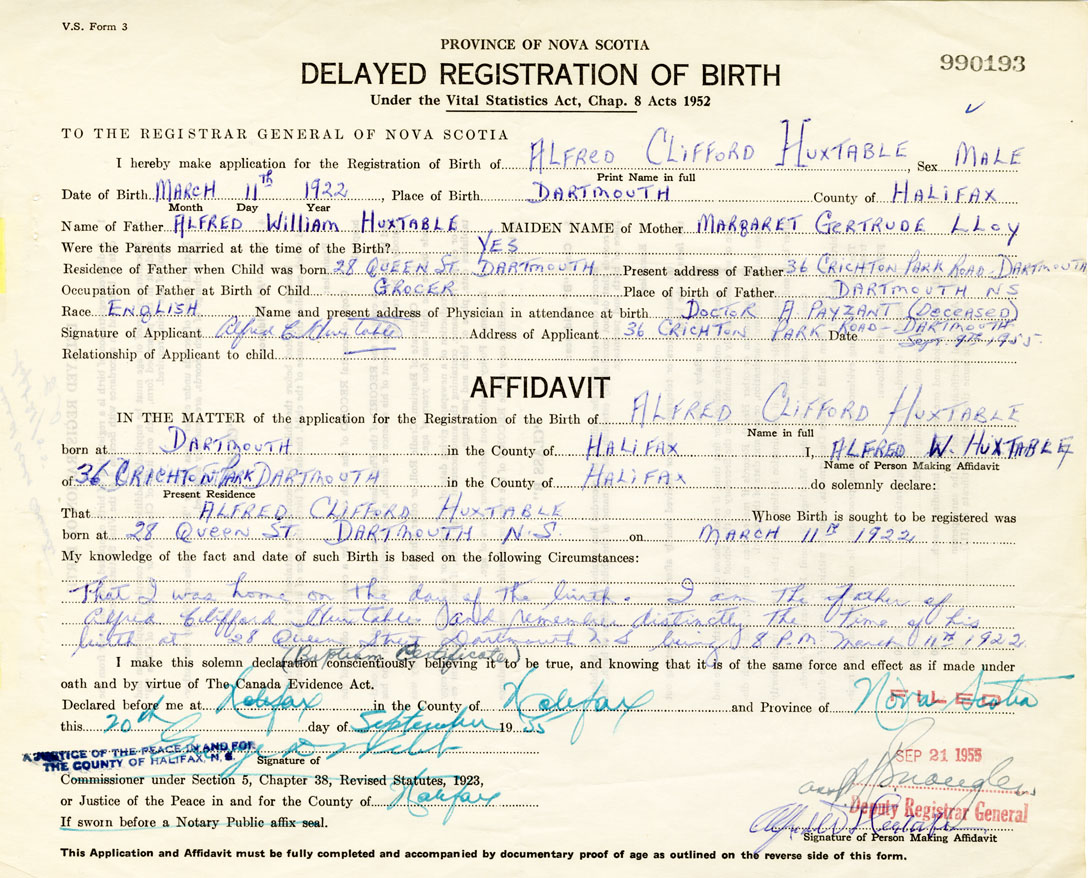 V.S. Form 3
PROVINCE OF NOVA SCOTIA
990193
DELAYED REGISTRATION OF BIRTH
Under the Vital Statistics Act, Chap. 8 Acts 1952
TO THE REGISTRAR GENERAL OF NOVA SCOTIA
I hereby make application for the Registration of Birth of ALFRED CLIFFORD HUXTABLE, Sex MALE
Print Name in full
Date of Birth MARCH 11th 1922, Place of Birth DARTMOUTH County of HALIFAX
Month Day Year
Name of Father ALFRED William HUXTABLE, MAIDEN NAME of Mother MARGARET GERTRUDE LLOY
Were the Parents married at the time of the Birth? YES
Residence of Father when Child was born 28 QUEEN ST DARTMOUTH Present address of Father 36 CRICHTON PARK ROAD - DARTMOUTH
Occupation of Father at Birth of Child GROCER Place of birth of Father DARTMOUTH NS
Race ENGLISH Name and present address of Physician in attendance at birth DOCTOR A PAYZANT (DECEASED)
Signature of Applicant Alfred C Huxtable Address of Applicant 36 CRICHTON PARK ROAD - DARTMOUTH Date Sept 9th, 1955
Relationship of Applicant to child
AFFIDAVIT
IN THE MATTER of the application for the Registration of the Birth of ALFRED CLIFFORD HUXTABLE
Name in full
born at DARTMOUTH in the County of HALIFAX I, ALFRED W. HUXTABLE
Name of Person Making Affidavit
of 36 CRICHTON PARK DARTMOUTH in the County of HALIFAX do solemnly declare:
Present Residence
That ALFRED CLIFFORD HUXTABLE Whose Birth is sought to be registered was
born at 28 QUEEN ST DARTMOUTH N.S. on MARCH 11th 1922
My knowledge of the fact and date of such Birth is based on the following Circumstances:
That I was home on the day of the birth. I am the father of
Alfred Clifford Huxtable and remember distinctly the time of his
birth at 28 Queen Street Dartmouth N.S being 8 P.M. March 11th 1922
(Baptism Certificate)
I make this solemn declaration conscientiously believing it to be true, and knowing that it is of the same force and effect as if made under
oath and by virtue of The Canada Evidence Act.
Declared before me at Halifax in the County of Halifax and Province of Nova Scotia
FILED
this 20th day of September 1955
SEP 21 1955
A JUSTICE OF THE PEACE IN AND FOR
THE COUNTY OF HALIFAX, N. S.
Signature of
Commissioner under Section 5, Chapter 38, Revised Statutes, 1923,
or Justice of the Peace in and for the County of Halifax
Deputy Registrar General
If sworn before a Notary Public affix seal.
Signature of Person Making Affidavit
This Application and Affidavit must be fully completed and accompanied by documentary proof of age as outlined on the reverse side of this form.